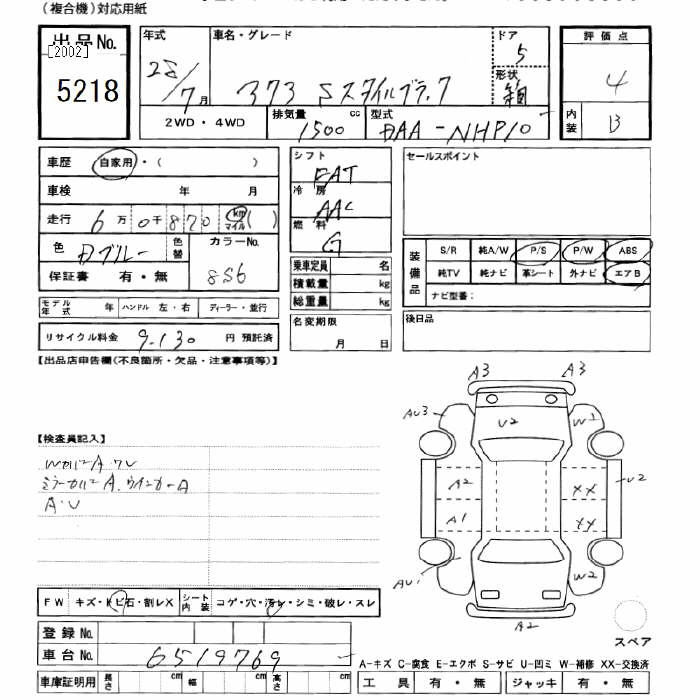 (複合機)対応用紙
出品No.
[2002]
5218
年式
28/7月
車名・グレード
373 Sスタイルブラック
ドア
5
形状
箱
評価点
4
内装
B
2WD・4WD
排気量
1500 cc
型式
DAA-NHP10
車歴 自家用・( )
車検 年 月
走行 6万0千870 km マイル ( )
色 Dブルー 色替
カラーNo.
8S6
保証書 有・無
モデル年式 年 ハンドル 左・右 ディーラー・並行
リサイクル料金 9,130 円 預託済
シフト
FAT
冷房
AAC
燃料
G
乗車定員 名
積載量 kg
総重量 kg
名変期限
月 日
セールスポイント
装備品
S/R 純A/W P/S P/W ABS
純TV 純ナビ 革シート 外ナビ エアB
ナビ型番:
後日品
【出品店申告欄(不良箇所・欠品・注意事項等)】
【検査員記入】
WカバーA.ワレ
ミラーカバーA.ウインカーA
A.U
A3 A3
AU3 U2 W1
A2 XX U2
A1 XX
AU1 W2
A2
スペア
FW キズ・トビ石・割レX シート内装 コゲ・穴・汚レ・シミ・破レ・スレ
登録No.
車台No. 6519769
車庫証明用 長さ cm 幅 cm 高さ cm
A-キズ C-腐食 E-エクボ S-サビ U-凹ミ W-補修 XX-交換済
工具 有・無 ジャッキ 有・無